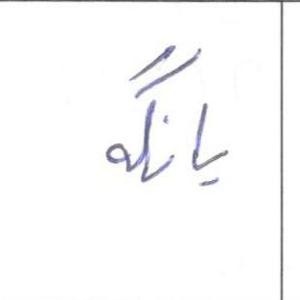 یانگه